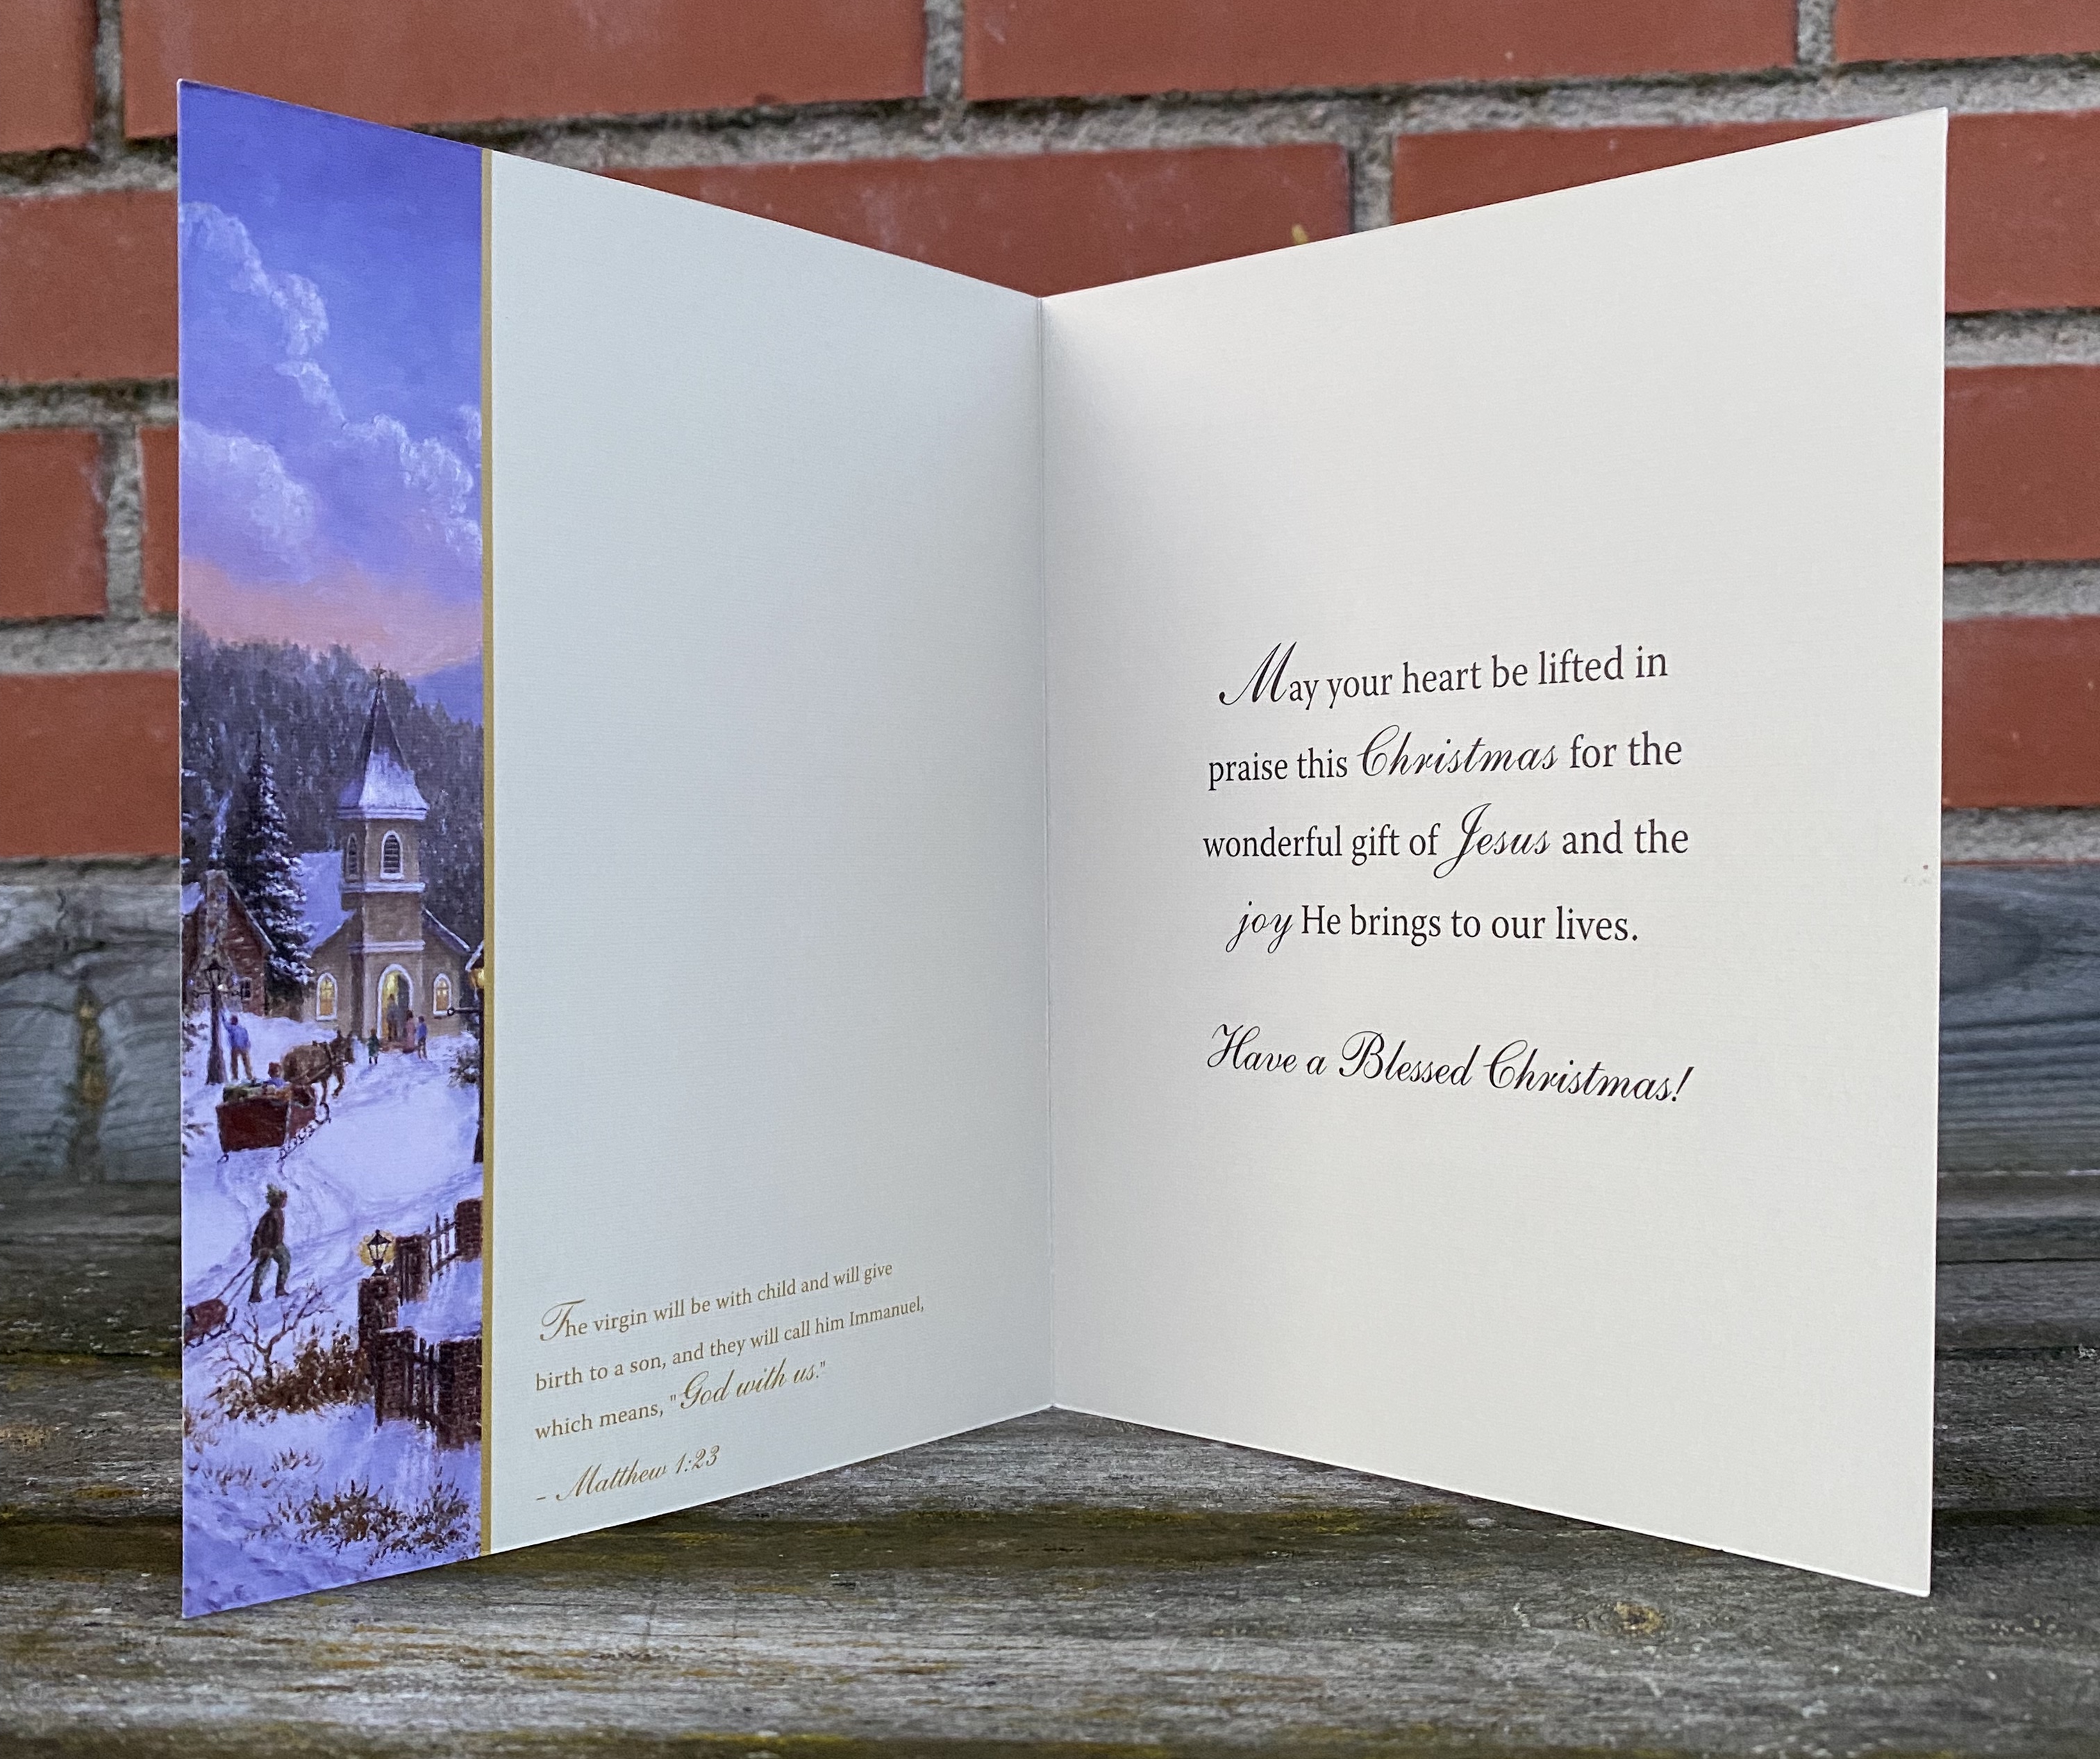 The virgin will be with child and will give
birth to a son, and they will call him Immanuel,
which means, "God with us."
- Matthew 1:23
May your heart be lifted in
praise this Christmas for the
wonderful gift of Jesus and the
joy He brings to our lives.
Have a Blessed Christmas!